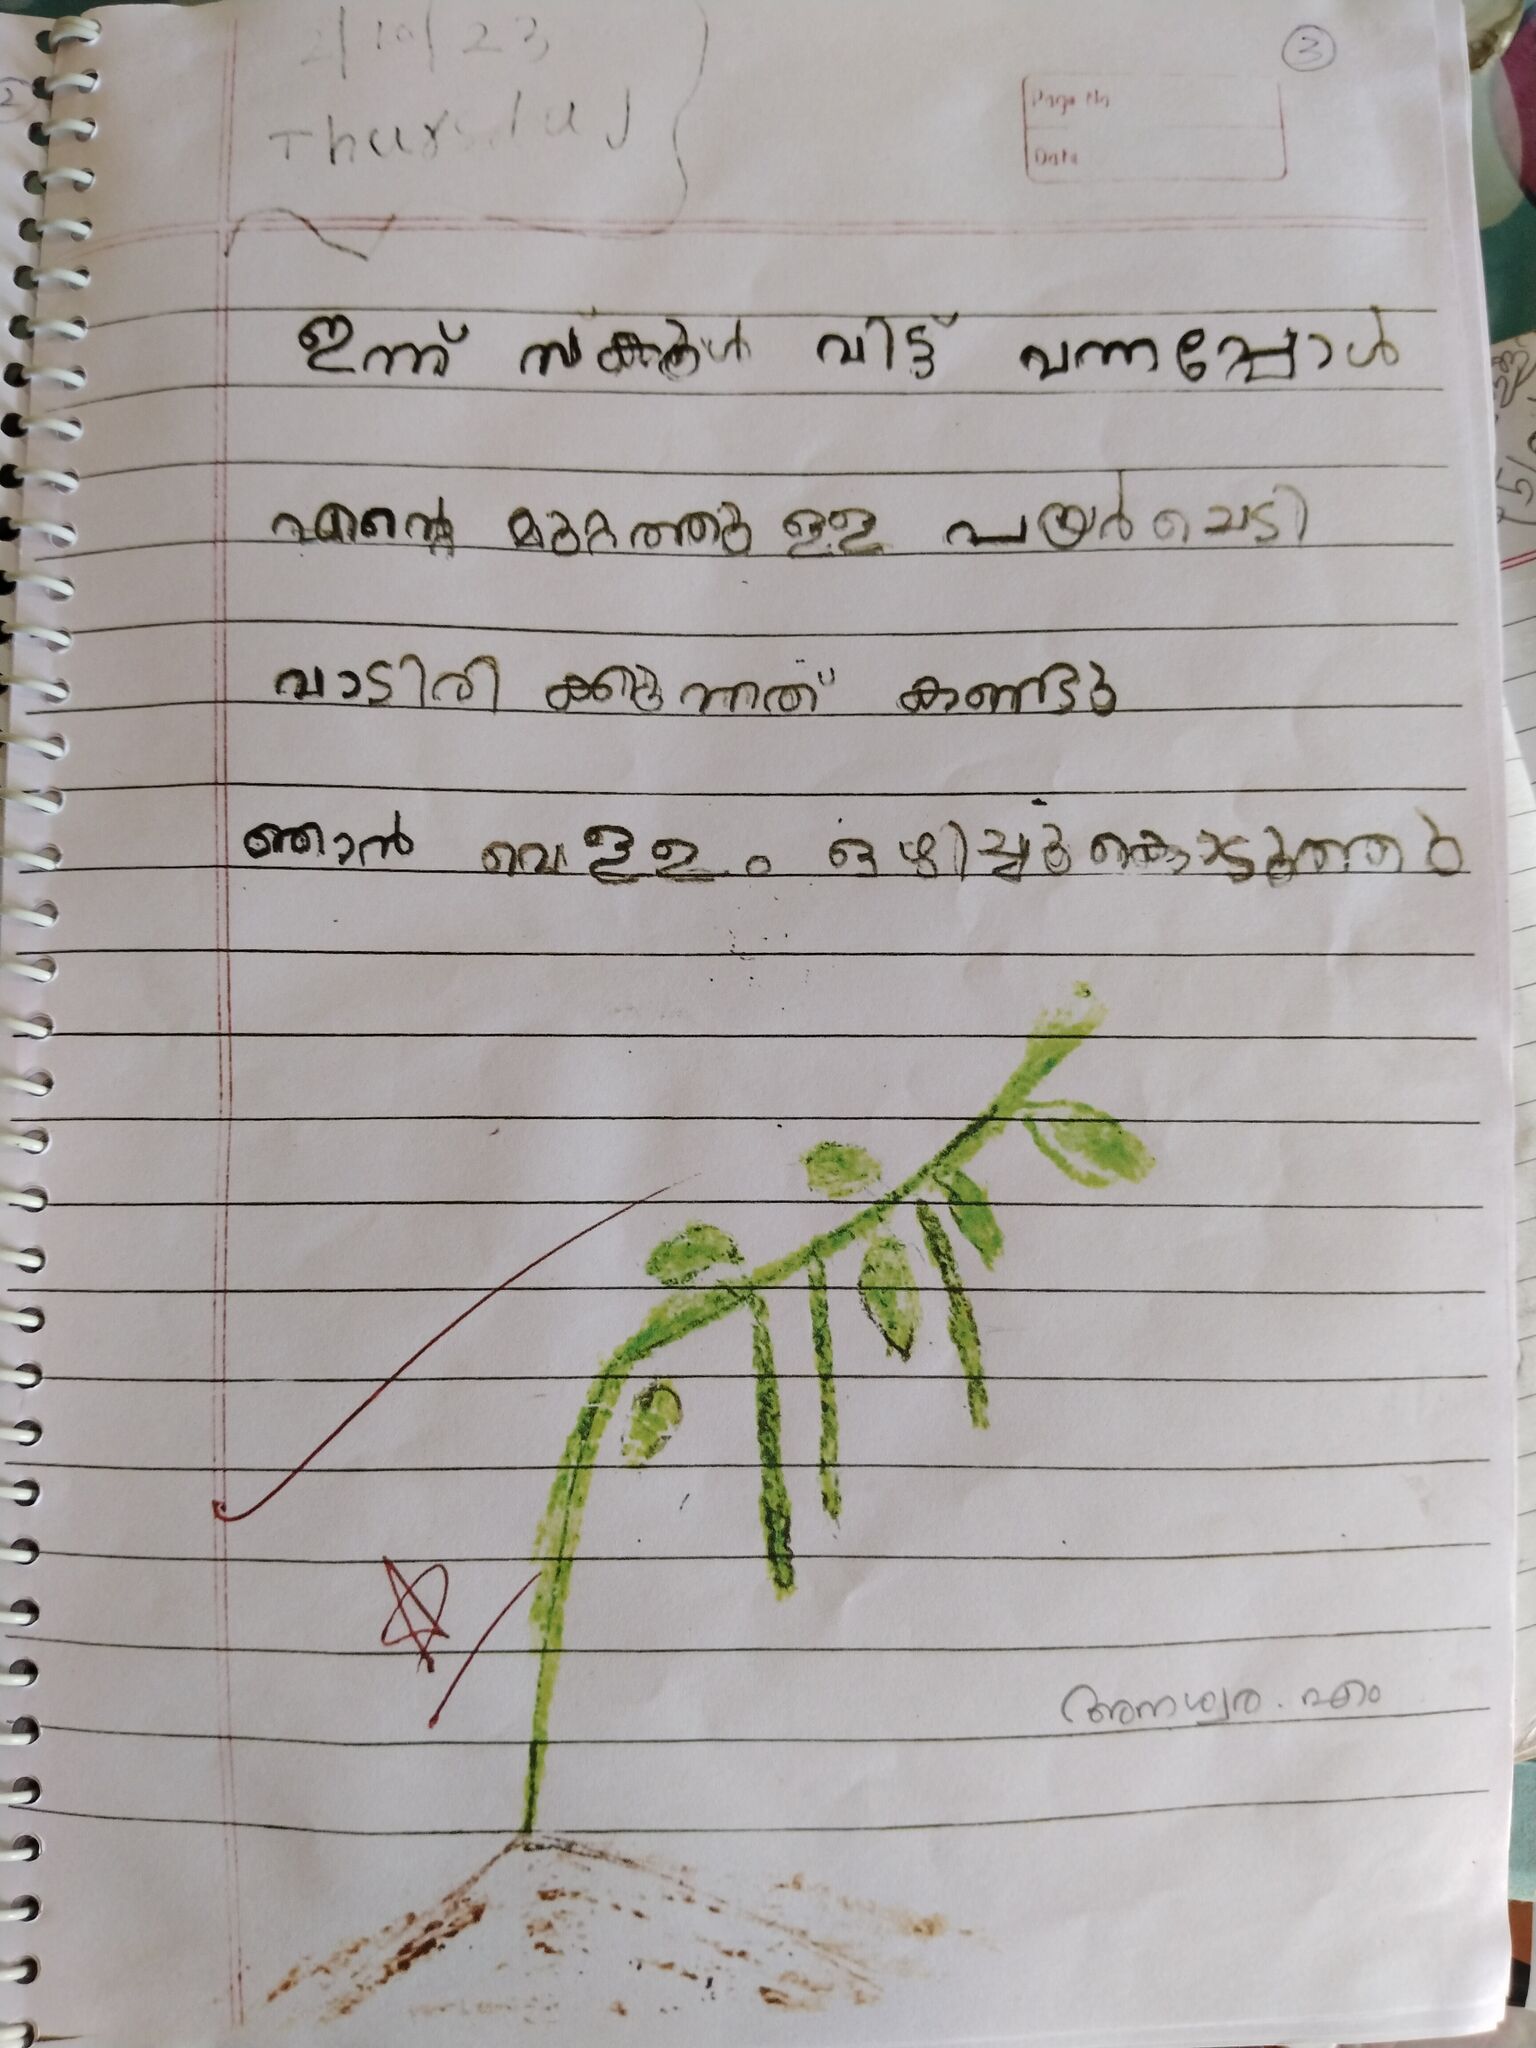 2/10/23
3
Thursday
Page No
Date
ഇന്ന് സ്കൂൾ വിട്ട് വന്നപ്പോൾ
എന്റെ മുറ്റത്തു ള്ള പയർ ചെടി
വാടിരി ക്കു ന്നത് കണ്ടു
ഞാൻ വെള്ളം ഒഴിച്ചു കൊടുത്തു
അനശ്വര. എം